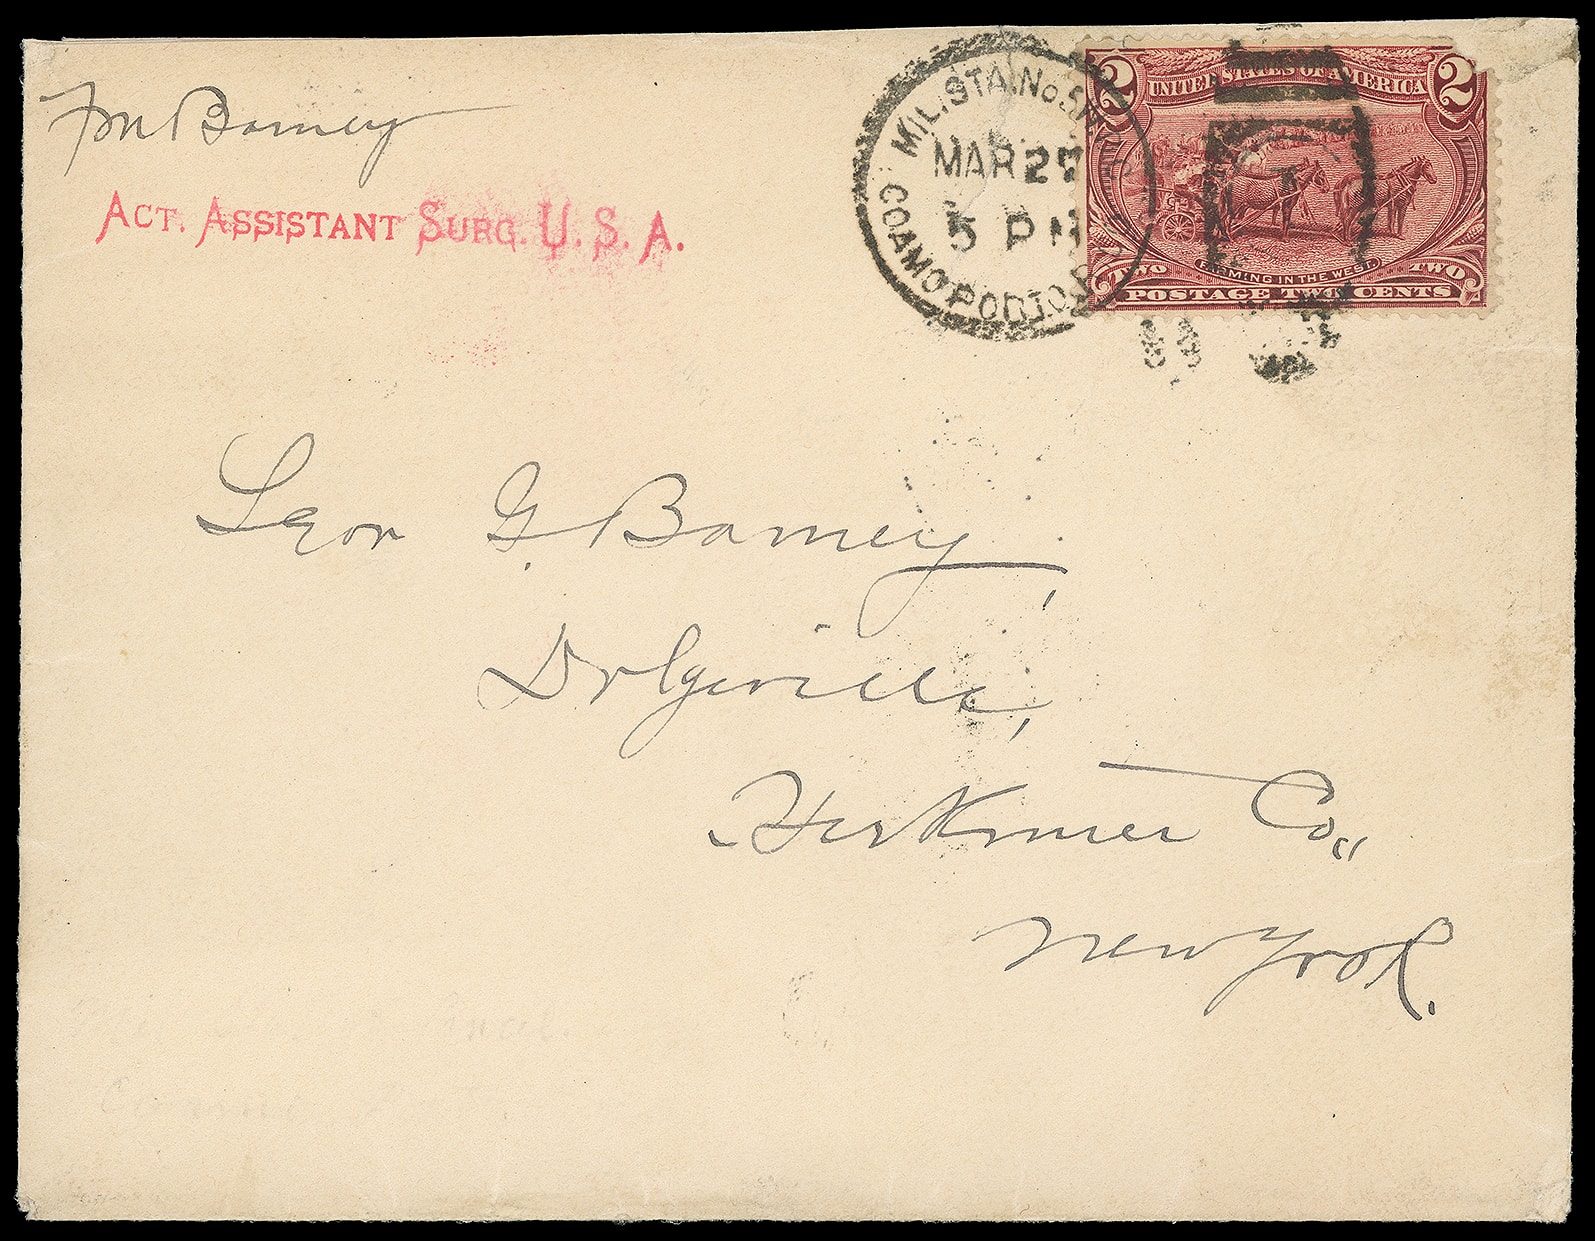 Barney
ACT. ASSISTANT SURG. U. S. A.
MIL. STA. No.
MAR 27
5 PM
COAMO PORTO
2 UNITED STATES OF AMERICA 2
FARMING IN THE WEST.
TWO TWO
POSTAGE TWO CENTS
Leon G. Barney,
Dolgeville,
Herkimer Co.,
New York.